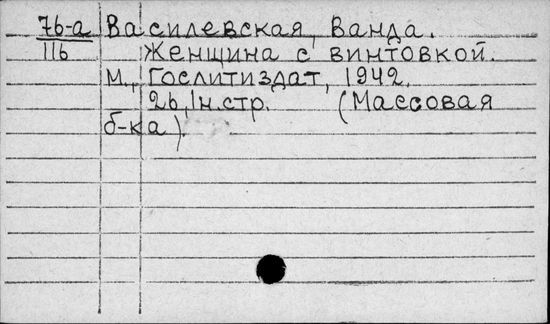 76-а Василевская, Ванда.
116 Женщина с винтовкой.
М., Гослитиздат, 1942.
26, 1н.стр. (Массовая
б-ка).